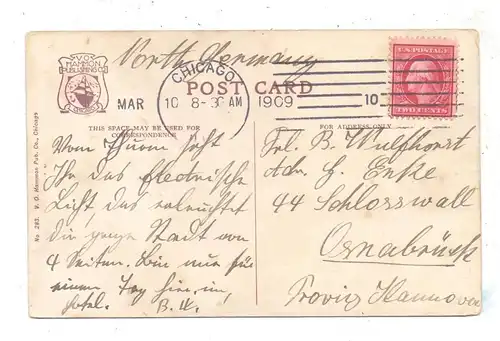 North Germany
V.O. HAMMON
PUBLISHING CO.
CHICAGO
POST CARD
CHICAGO
MAR 10 8-30 AM 1909
10
U.S. POSTAGE
TWO CENTS
THIS SPACE MAY BE USED FOR
CORRESPONDENCE
FOR ADDRESS ONLY
No. 283. V. O. Hammon Pub. Co., Chicago
Vom Thurm seht
Ihr das electrische
Licht das erleuchtet
die ganze Stadt von
4 Seiten. Bin nur für
einen Tag hier, im
Hotel. B.W.
Frl. B. Wulfhorst
Adr. H. Enke
44 Schlosswall
Osnabrück
Proviz Hannover